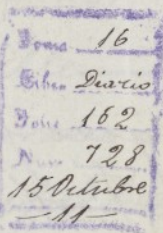 Tomo 16
Libro Diario
Folio 162
Núm. 728
15 Octubre
-11-